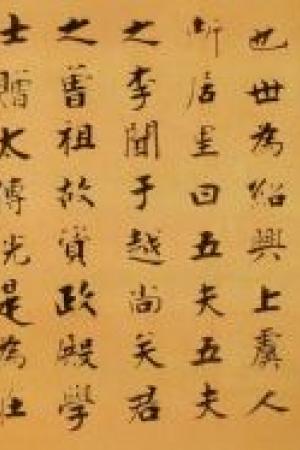 也世為紹興上虞人
所居里曰五夫五夫
之李聞于越尚矣君
之曾祖故資政殿學
士贈太傅光是為莊